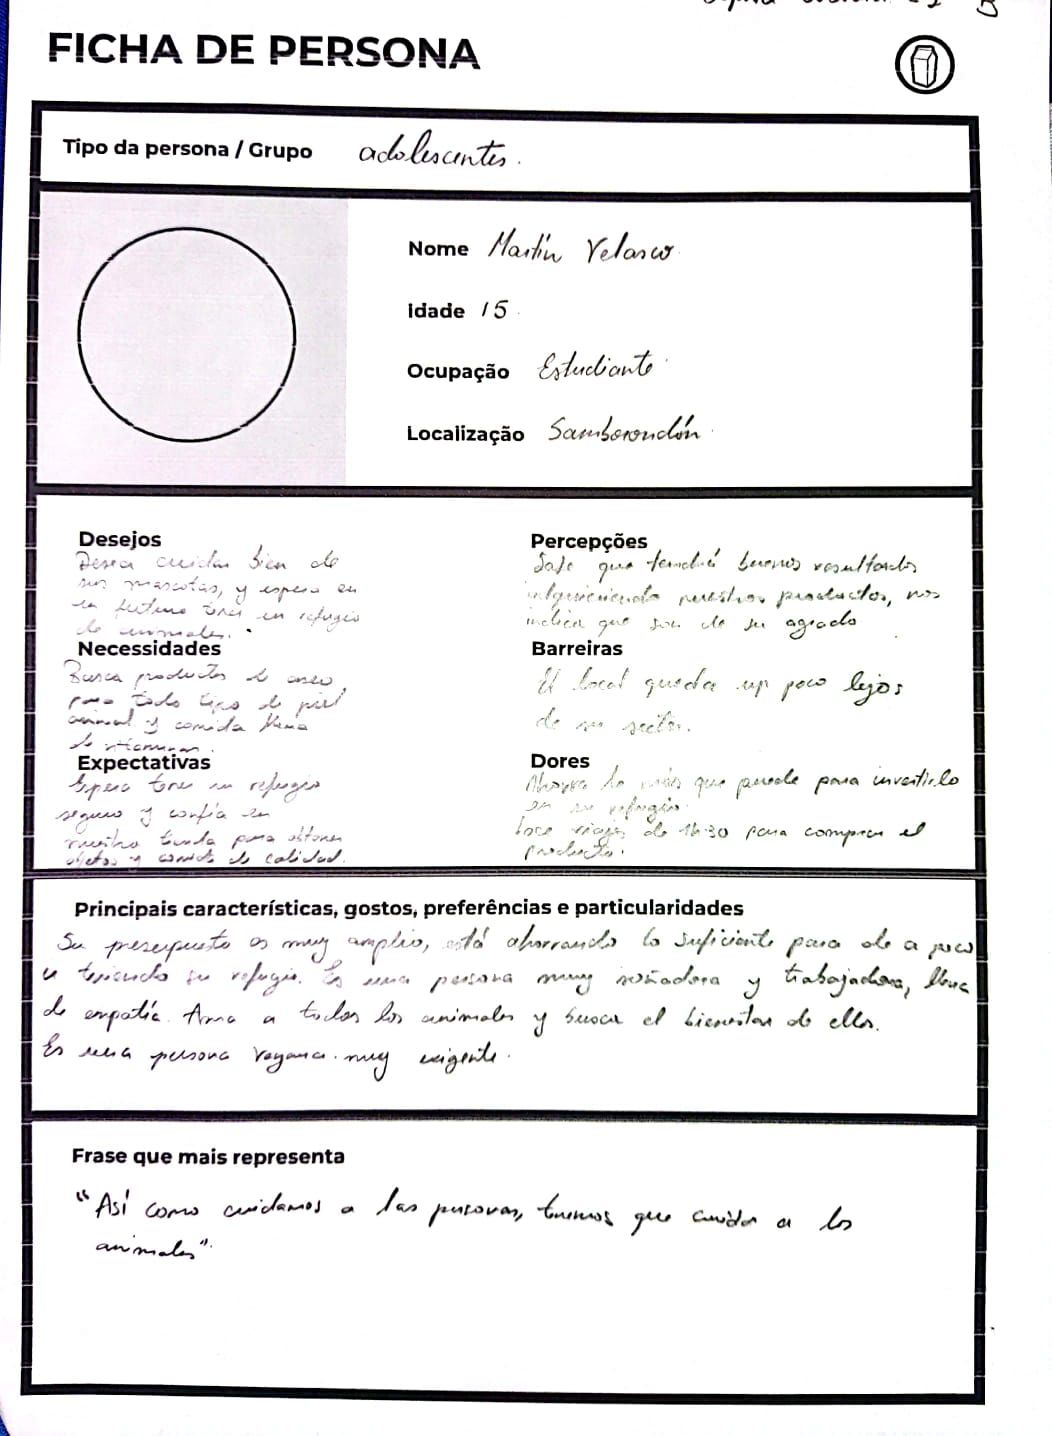 FICHA DE PERSONA
Tipo da persona / Grupo adolescentes.
Nome Martín Velasco
Idade 15
Ocupação Estudiante
Localização Samborondón
Desejos
Desea cuidar bien de
sus mascotas, y espera en
un futuro tener un refugio
de animales.
Necessidades
Busca productos de aseo
para todo tipo de piel
animal y comida llena
de vitaminas.
Expectativas
Espera tener un refugio
seguro y confía en
nuestra tienda para obtener
objetos y comida de calidad.
Percepções
Sabe que tendrá buenos resultados
nuestros productos, nos
indica que son de su agrado
Barreiras
El local queda un poco lejos
de su sector.
Dores
Ahorra lo más que puede para invertirlo
en su refugio.
viajes de 1h30 para comprar el
producto.
Principais características, gostos, preferências e particularidades
Su presupuesto es muy amplio, está ahorrando lo suficiente para de a poco
ir teniendo su refugio. Es una persona muy soñadora y trabajadora, llena
de empatía. Ama a todos los animales y busca el bienestar de ellos.
Es una persona vegana. muy exigente.
Frase que mais representa
"Así como cuidamos a las personas, tenemos que cuidar a los
animales".